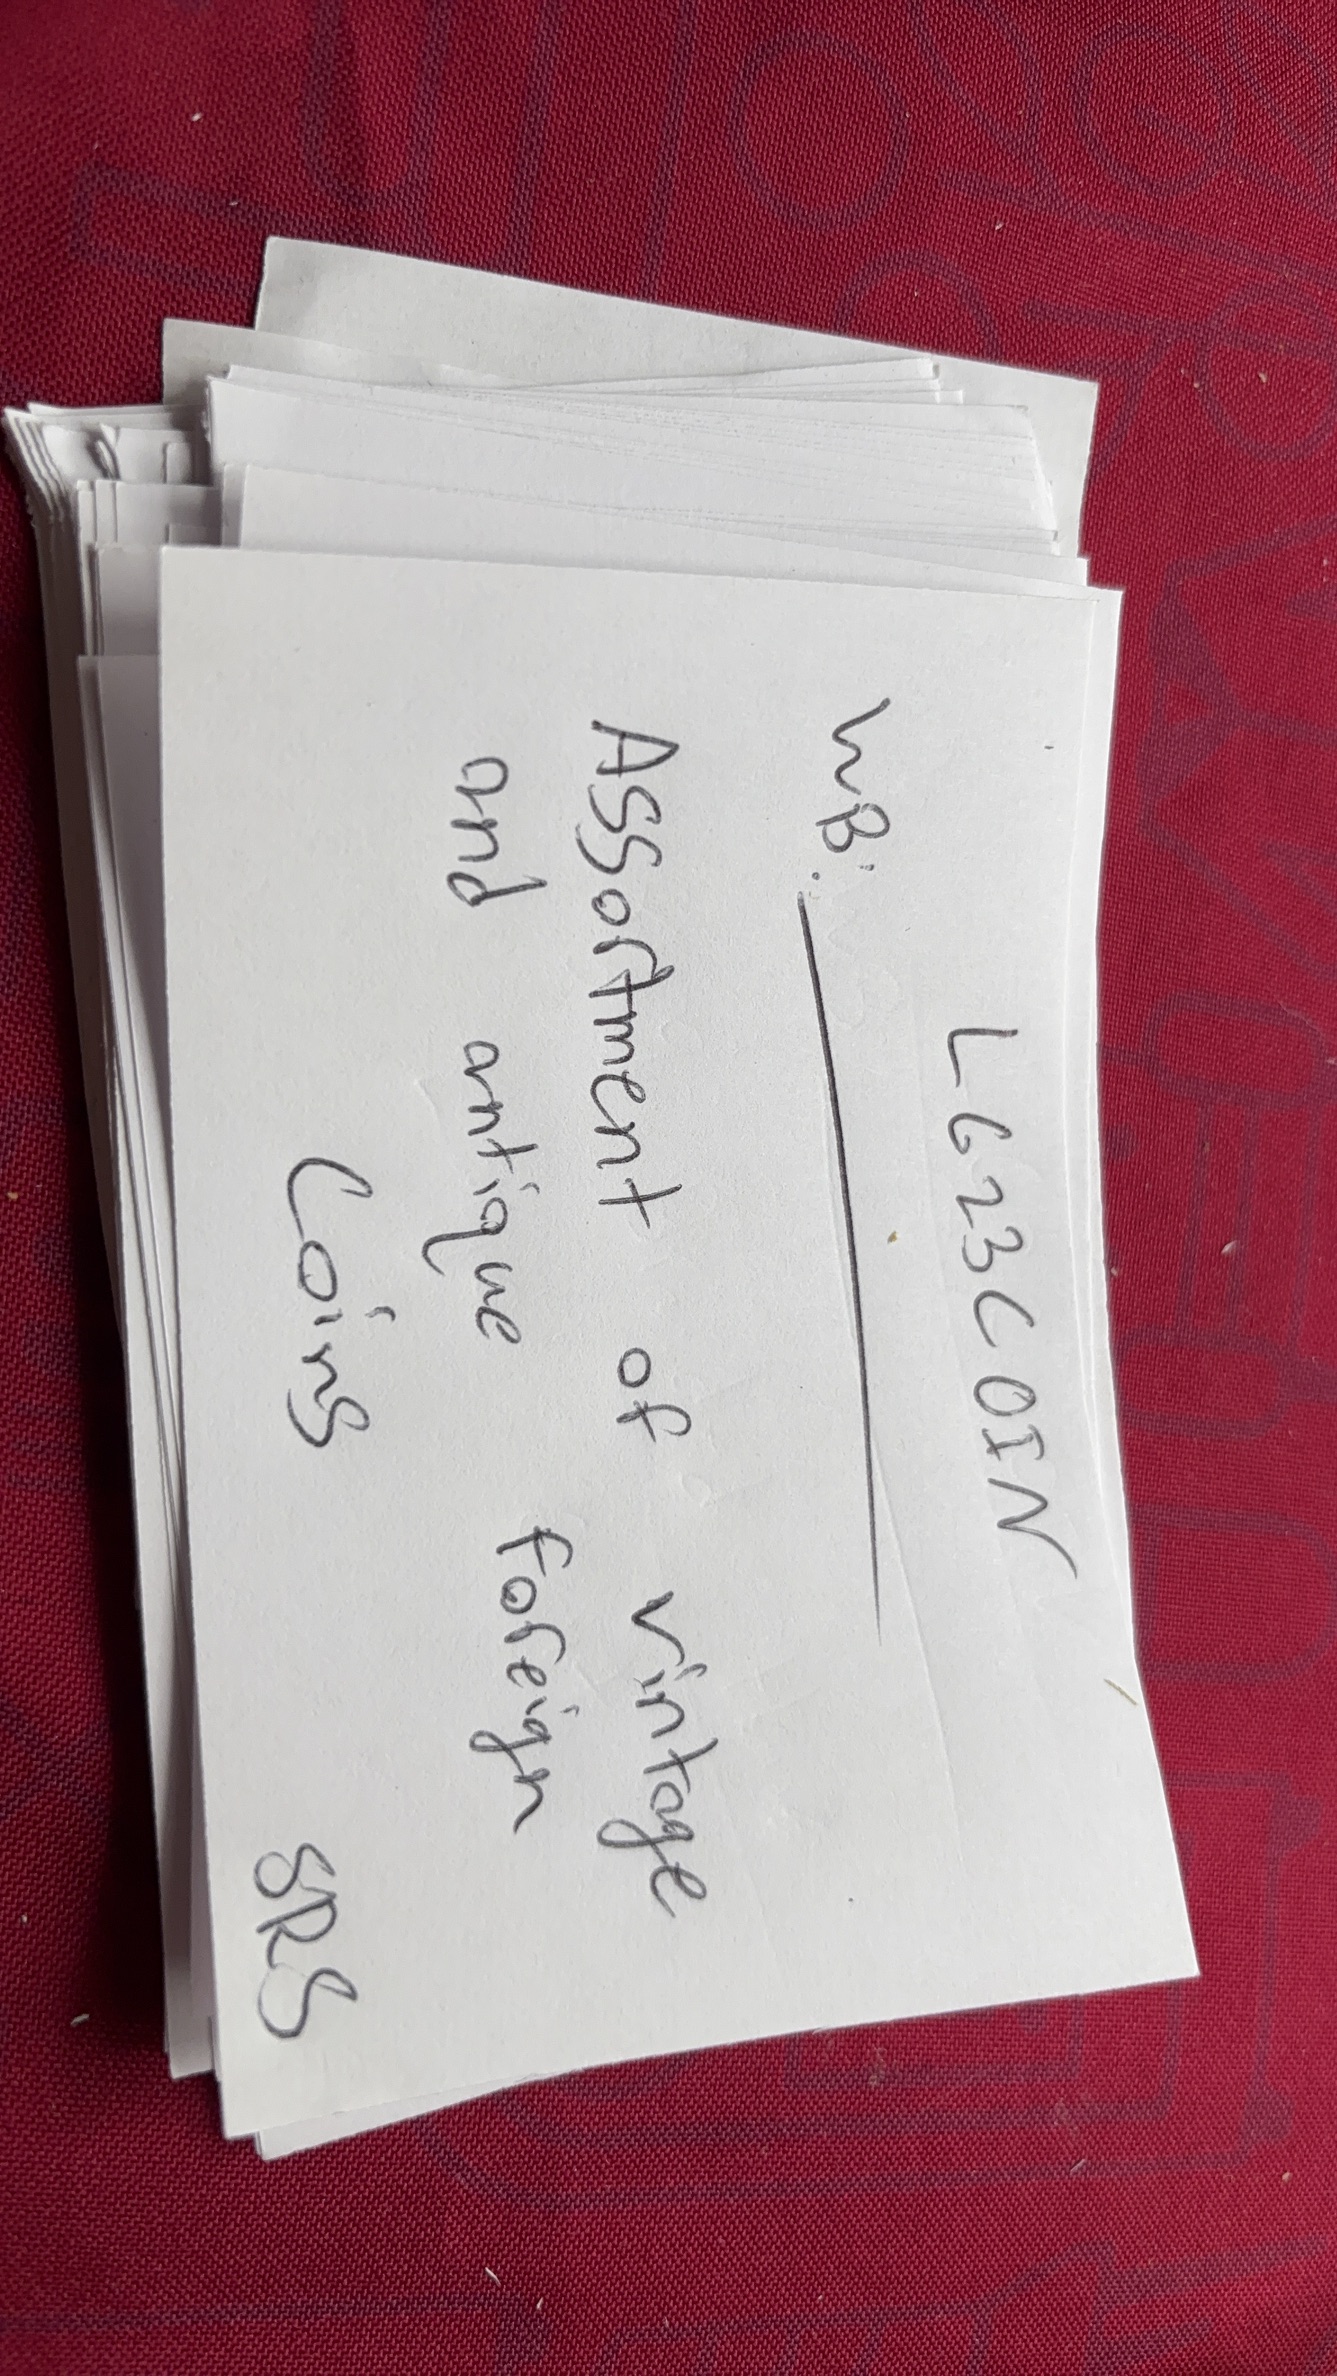 LG23COIN
WB:
Assortment of vintage
and antique foreign
Coins
SRS